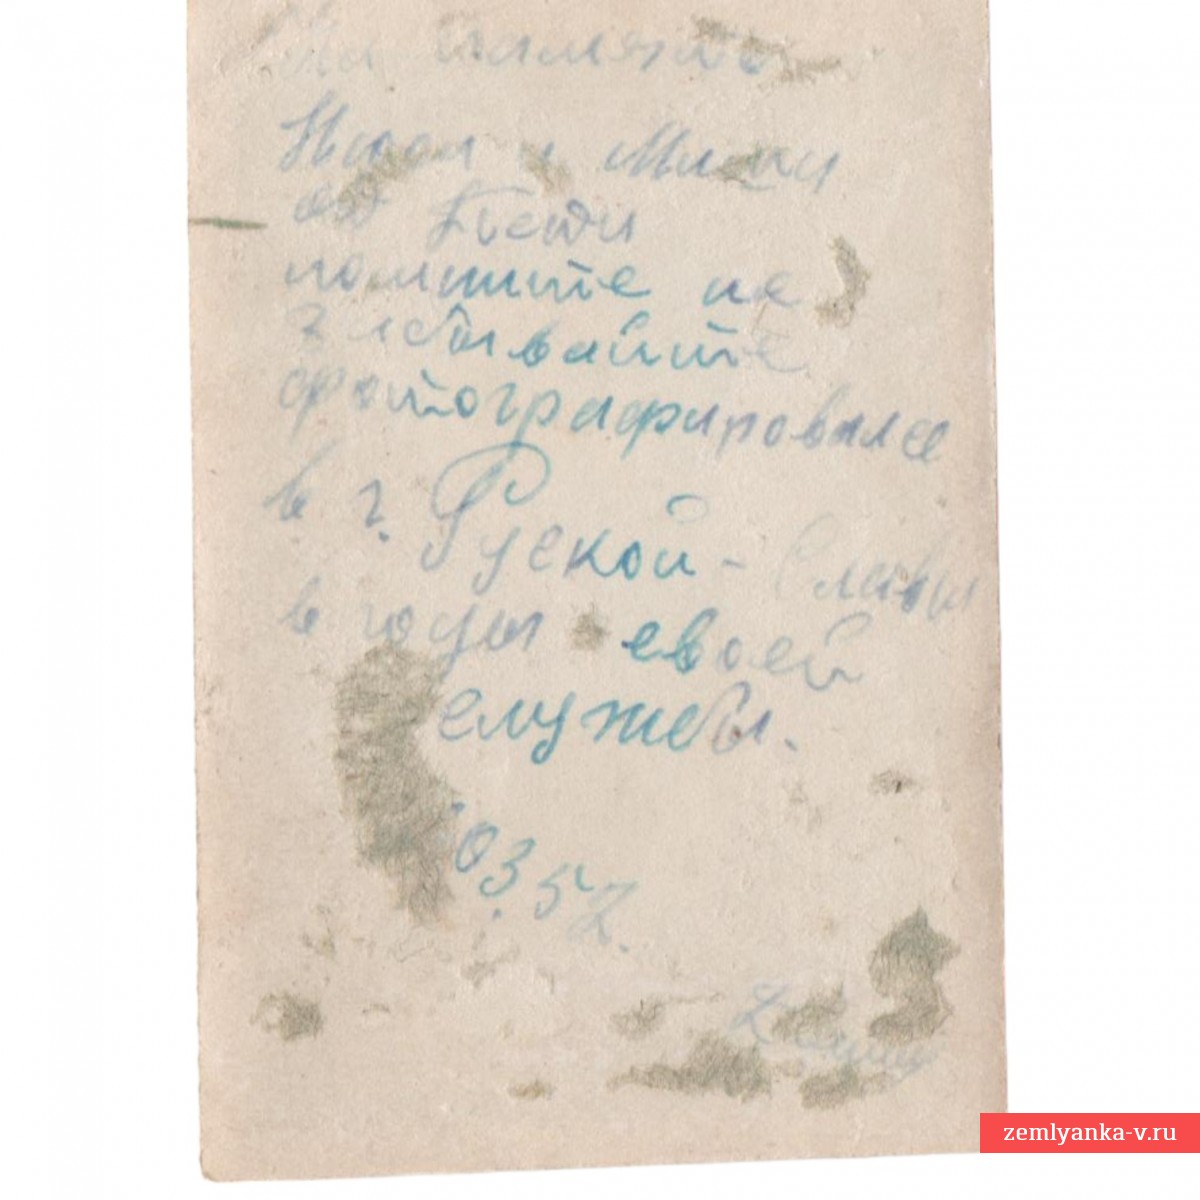 На память
и Миши
от Пети
помните не
забывайте
фотографировался
в г. Руской-Славы
в годы своей
службы.
03.57.
zemlyanka-v.ru